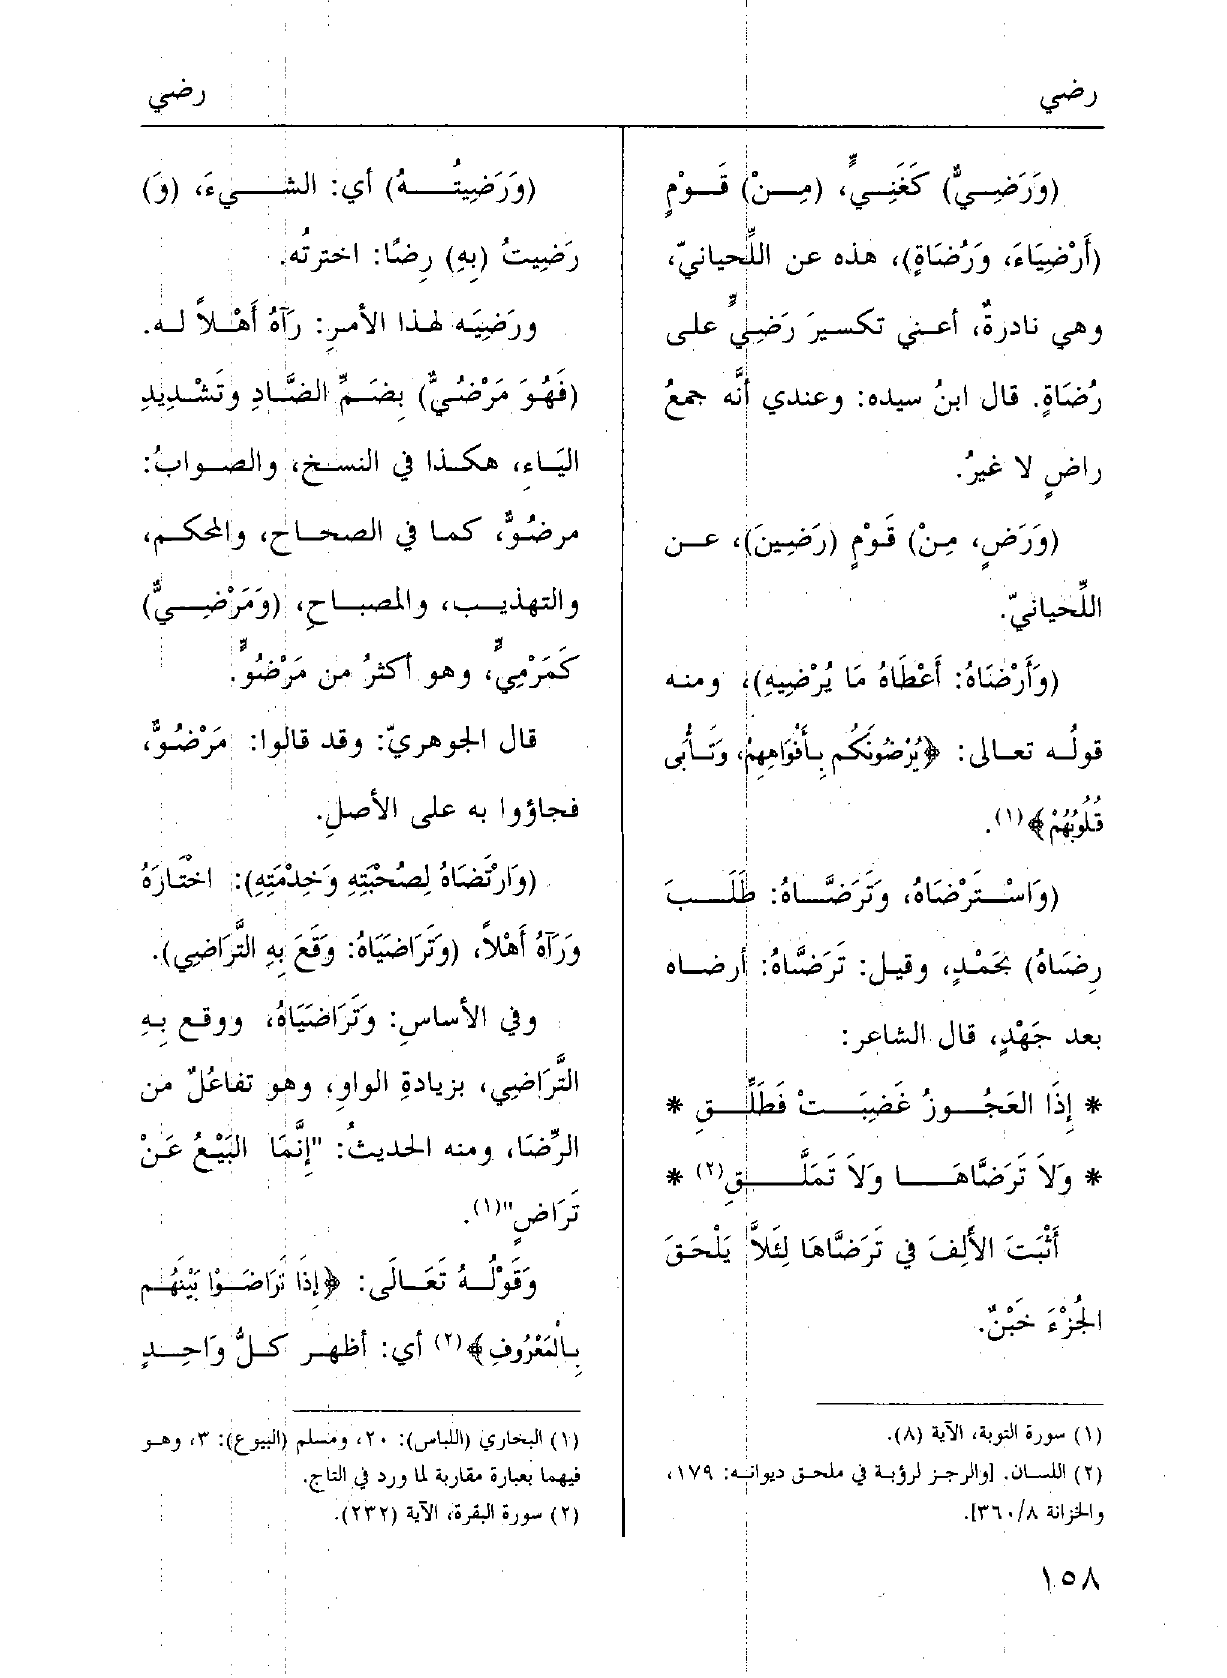 رضي
رضي
(وَرَضِيٌّ) كَغَنِيٍّ، (مِنْ) قَوْمٍ
(أَرْضِيَاءَ، وَرُضَاةٍ)، هذه عن اللِّحيانيّ،
وهي نادرةٌ، أعني تكسيرَ رَضِيٍّ على
رُضَاةٍ. قال ابنُ سيده: وعندي أنَّه جمعُ
راضٍ لا غيرُ.
(وَرَضٍ، مِنْ) قَوْمٍ (رَضِينَ)، عن
اللِّحيانيّ.
(وَأَرْضَاهُ: أَعْطَاهُ مَا يُرْضِيهِ)، ومنه
قولُه تعالى: ﴿يُرْضُونَكُم بِأَفْوَاهِهِمْ، وَتَأْبى
قُلُوبُهُمْ﴾(١).
(وَاسْتَرْضَاهُ، وَتَرَضَّاهُ: طَلَبَ
رِضَاهُ) بجَهْدٍ، وقيل: تَرَضَّاهُ: أرضاه
بعد جَهْدٍ، قال الشاعر:
* إِذَا العَجُوزُ غَضِبَتْ فَطَلِّقِ *
* وَلاَ تَرَضَّاهَا وَلاَ تَمَلَّقِ(٢) *
أَثْبَتَ الأَلِفَ في تَرَضَّاهَا لِئَلاَّ يَلْحَقَ
الجُزْءَ خَبْنٌ.
(١) سورة التوبة، الآية (٨).
(٢) اللسان. [والرجز لرؤبة في ملحق ديوانه: ١٧٩،
والخزانة ٣٦٠/٨].
١٥٨
(وَرَضِيتُهُ) أي: الشيءَ، (وَ)
رَضِيتُ (بِهِ) رِضًا: اخترتُه.
ورَضِيَه لهذا الأمرِ: رَآهُ أَهْلاً له.
(فَهُوَ مَرْضُيٌّ) بِضَمِّ الضَّادِ وتَشْدِيدِ
اليَاءِ، هكذا في النسخ، والصوابُ:
مرضُوٌّ، كما في الصحاح، والمحكم،
والتهذيب، والمصباحِ، (وَمَرْضِيٌّ)
كَمَرْمِيٍّ، وهو أكثرُ من مَرْضُوٍّ.
قال الجوهريّ: وقد قالوا: مَرْضُوٌّ،
فجاؤوا به على الأصلِ.
(وَارْتَضَاهُ لِصُحْبَتِهِ وَخِدْمَتِهِ): اخْتَارَهُ
وَرَآهُ أَهْلاً، (وَتَرَاضَيَاهُ: وَقَعَ بِهِ التَّرَاضِي).
وفي الأساسِ: وَتَرَاضَيَاهُ، ووقع بِهِ
التَّرَاضِي، بزيادةِ الواوِ، وهو تفاعُلٌ من
الرِّضَا، ومنه الحديثُ: "إِنَّمَا البَيْعُ عَنْ
تَرَاضٍ"(١).
وَقَوْلُهُ تَعَالَى: ﴿إِذَا تَرَاضَوْا بَيْنَهُم
بِالْمَعْرُوفِ﴾(٢) أي: أظهر كلُّ وَاحِدٍ
(١) البخاري (اللباس): ٢٠، ومسلم (البيوع): ٣، وهو
فيهما بعبارة مقاربة لما ورد في التاج.
(٢) سورة البقرة، الآية (٢٣٢).